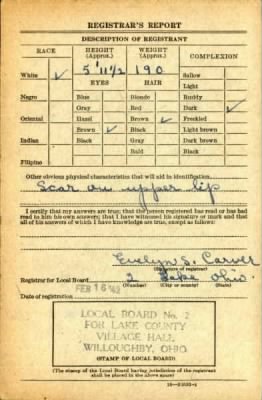 REGISTRAR'S REPORT
DESCRIPTION OF REGISTRANT
RACE HEIGHT (Approx.) WEIGHT (Approx.) COMPLEXION
White ✓ 5' 11½ 190 Sallow
EYES HAIR Light
Negro Blue Blonde Ruddy
Gray Red Dark ✓
Oriental Hazel Brown ✓ Freckled
Brown ✓ Black Light brown
Indian Black Gray Dark brown
Bald Black
Filipino
Other obvious physical characteristics that will aid in identification
Scar on upper lip
I certify that my answers are true; that the person registered has read or has had
read to him his own answers; that I have witnessed his signature or mark and that
all of his answers of which I have knowledge are true, except as follows:
Evelyn S. Carver
(Signature of registrar)
Registrar for Local Board 2 Lake Ohio.
(Number) (City or county) (State)
Date of registration FEB 16 '42
LOCAL BOARD No. 2
FOR LAKE COUNTY
VILLAGE HALL
WILLOUGHBY, OHIO
(STAMP OF LOCAL BOARD)
(The stamp of the Local Board having jurisdiction of the registrant
shall be placed in the above space)